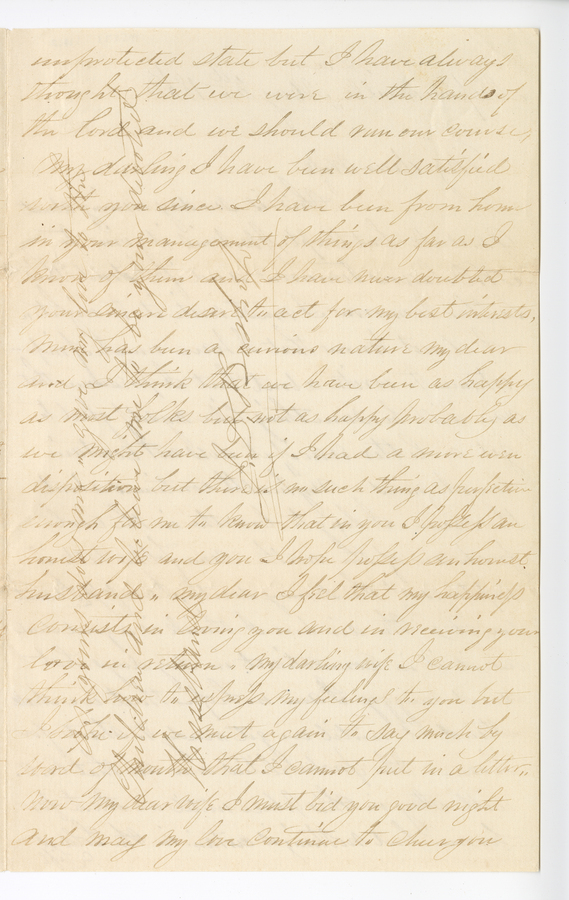 unprotected state but I have always
thought that we were in the hands of
the Lord and we should run our course,
My darling I have been well satisfied
with you since I have been from home
in your management of things as far as I
know of them and I have never doubted
your sincere desire to act for my best interests,
Mine has been a curious nature my dear
and I think that we have been as happy
as most folks but not as happy probably as
we might have been if I had a more even
disposition but there is no such thing as perfection
enough for me to know that in you I possess an
honest wife and you I hope possess an honest
husband " my dear I feel that my happiness
consists in loving you and in receiving your
love in return " My darling wife I cannot
think how to express my feelings to you but
I hope if we meet again to say much by
word of mouth that I cannot put in a letter "
Now my dear wife I must bid you good night
and may my love continue to cheer you
give my love to the
children and believe me to be your devoted
husband